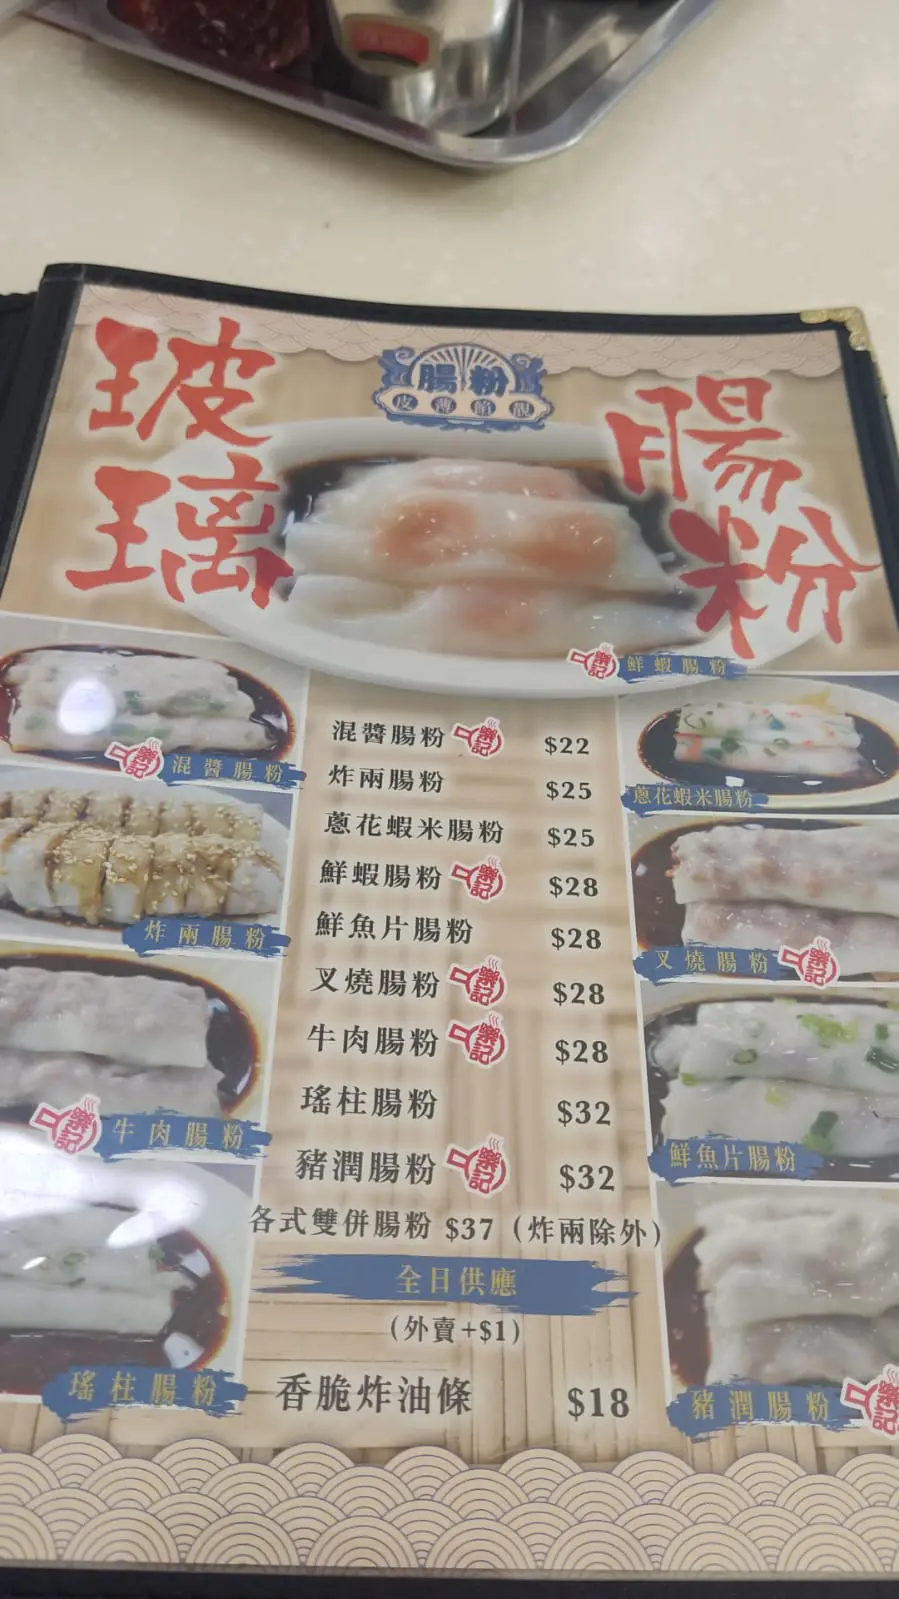 玻璃
腸粉
腸粉
皮薄餡靚
樂記
鮮蝦腸粉
混醬腸粉 樂記 $22
炸兩腸粉 $25
蔥花蝦米腸粉 $25
鮮蝦腸粉 樂記 $28
鮮魚片腸粉 $28
叉燒腸粉 樂記 $28
牛肉腸粉 樂記 $28
瑤柱腸粉 $32
豬潤腸粉 樂記 $32
各式雙併腸粉 $37 (炸兩除外)
全日供應
(外賣+$1)
香脆炸油條 $18
樂記 混醬腸粉
炸兩腸粉
樂記 牛肉腸粉
瑤柱腸粉
蔥花蝦米腸粉
叉燒腸粉 樂記
鮮魚片腸粉
豬潤腸粉 樂記